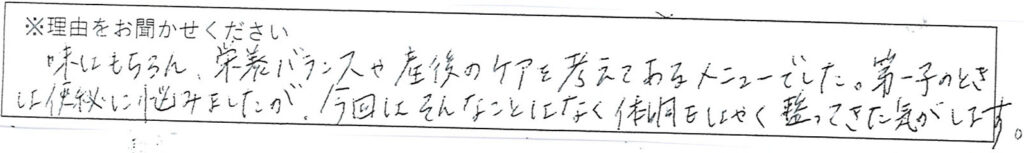 ※理由をお聞かせください
味はもちろん、栄養バランスや産後のケアを考えてあるメニューでした。第一子のとき
は便秘に悩みましたが、今回はそんなことはなく体調もはやく整ってきた気がします。